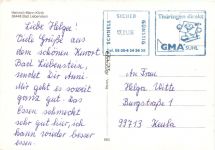 Heinrich-Mann-Klinik
36448 Bad Liebenstein
Liebe Helga!
Viele Grüße aus
dem schönen Kurort
Bad Liebenstein,
sendet Dir Anni.
Mir geht es soweit
ganz gut, das
Essen schmeckt
sehr gut hier, ich
kann wieder besser
essen
SCHNELL
SICHER
GÜNSTIG
Thüringen direkt
GMA SUHL
An Frau
Helga Witte
Burgstraße 1
99713 Keula